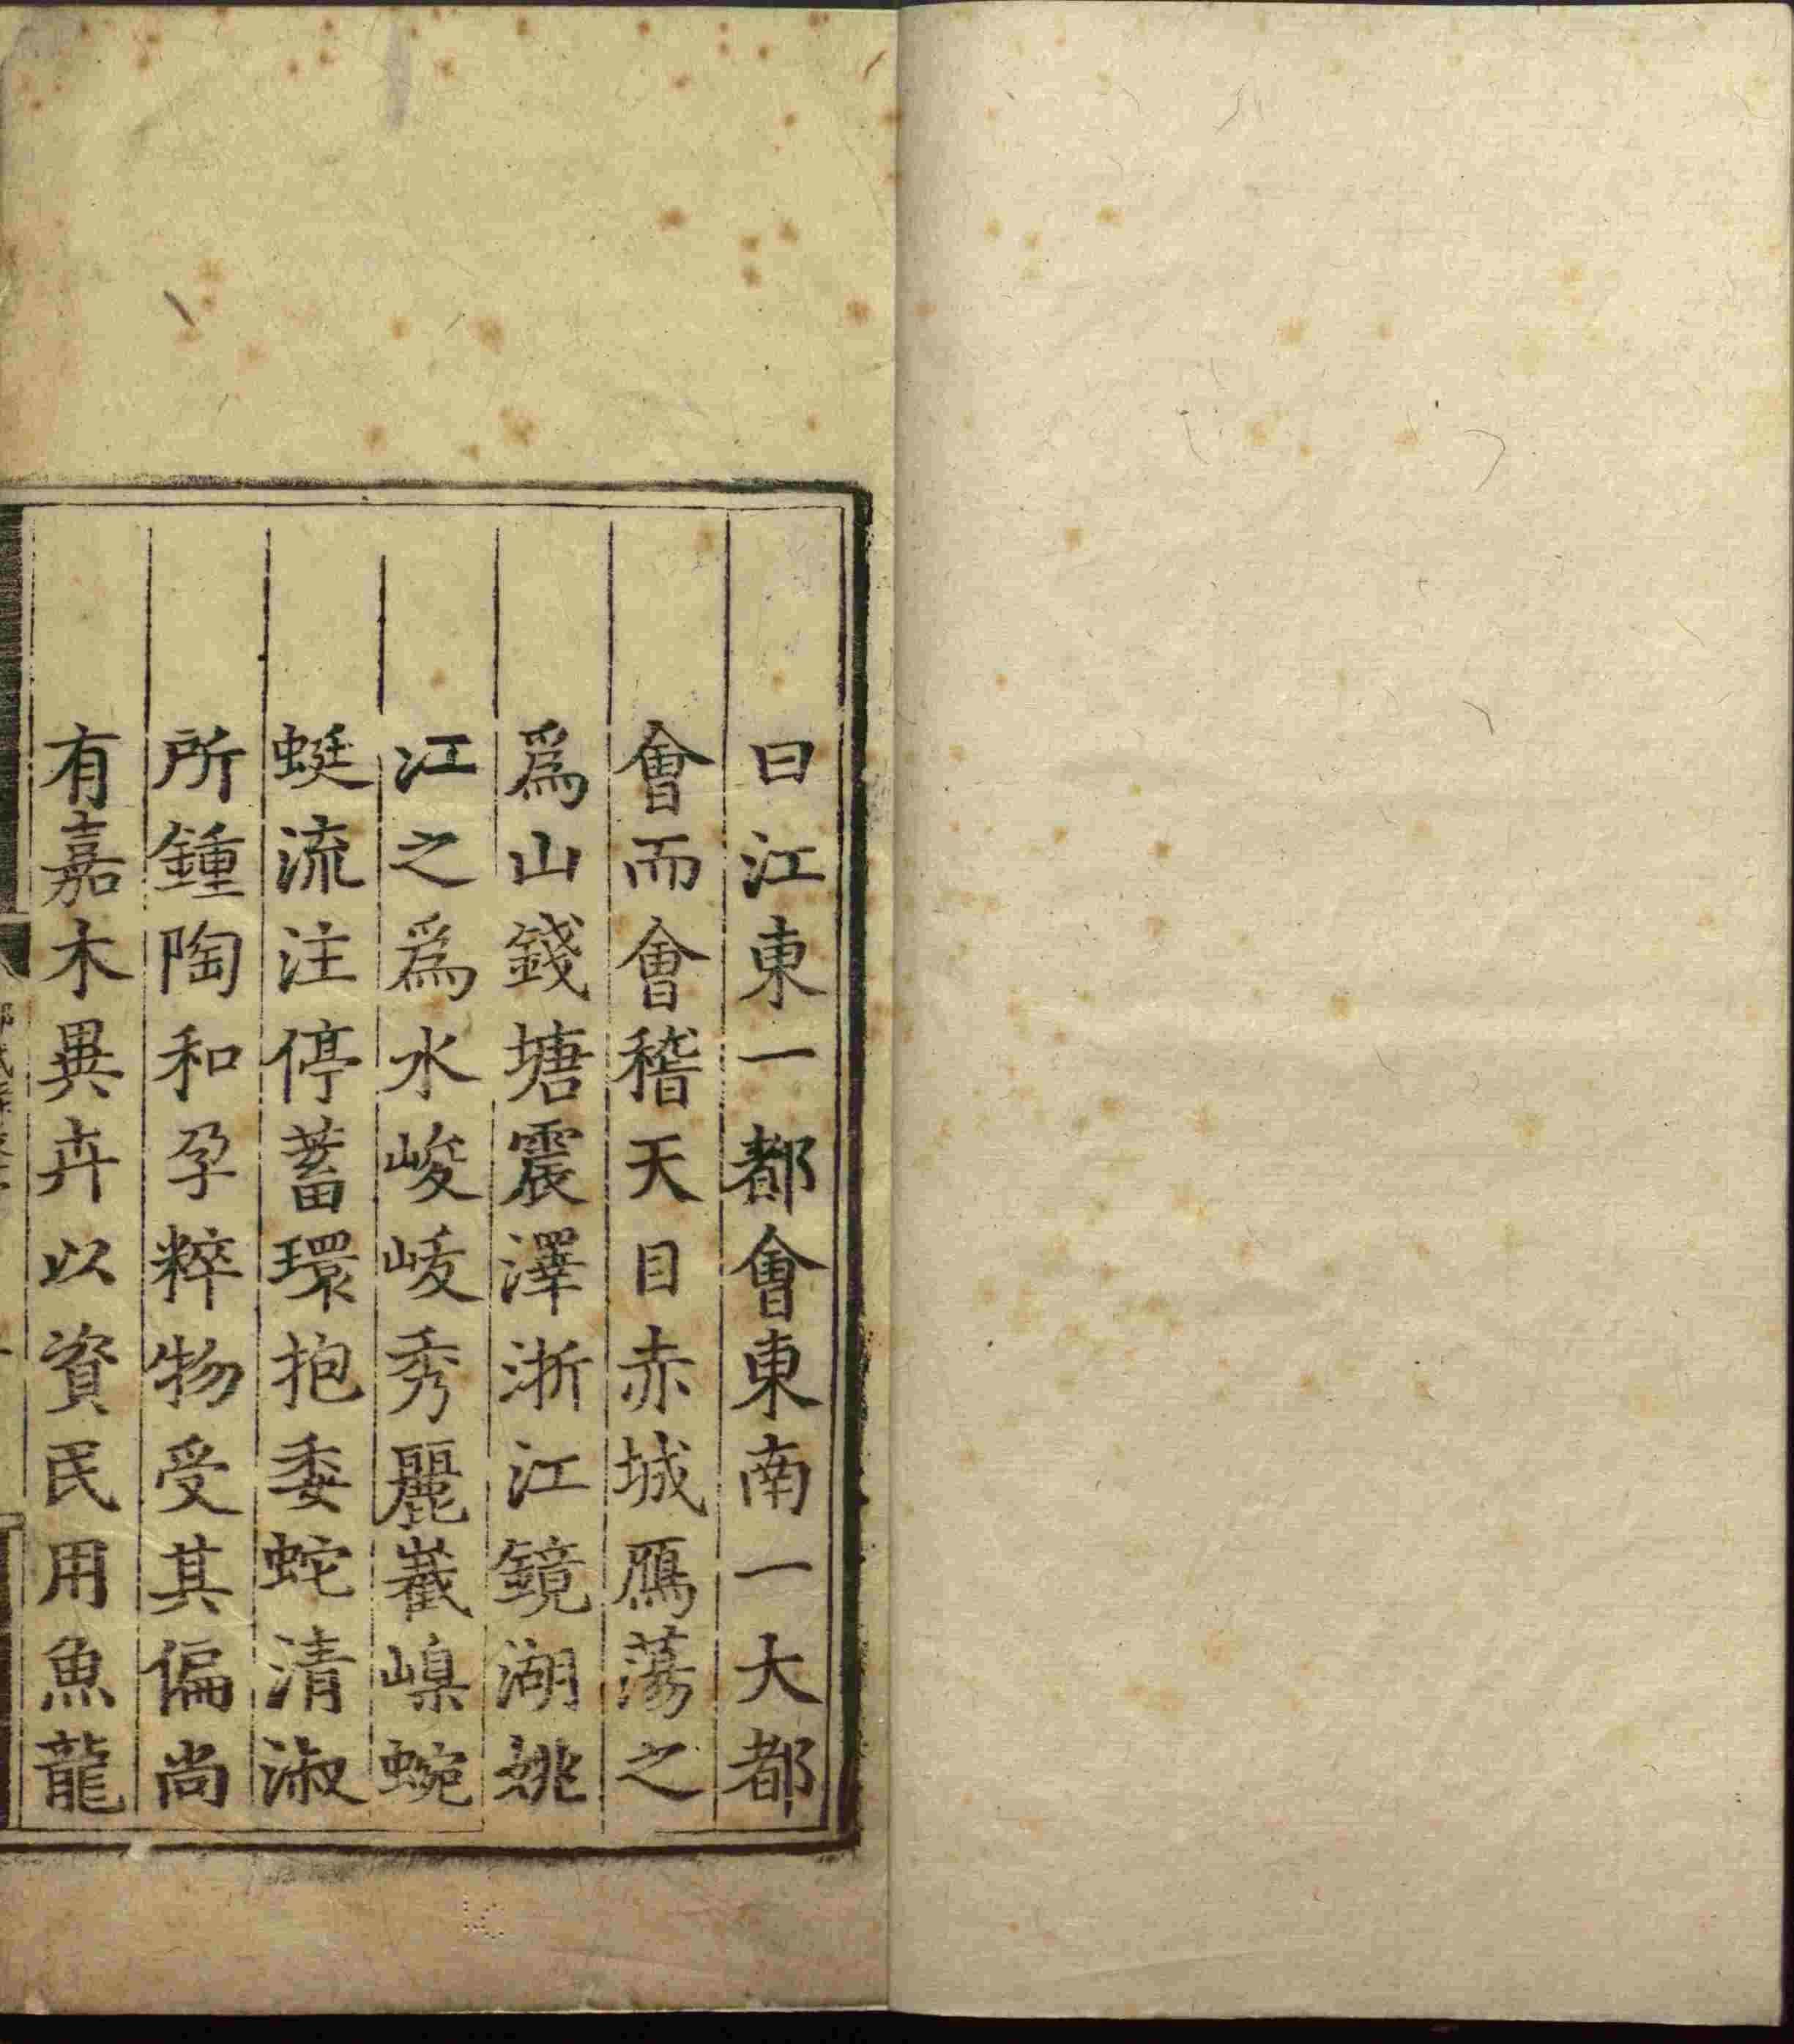 曰江東一都會東南一大都
會而會稽天目赤城鴈蕩之
爲山錢塘震澤浙江鏡湖姚
江之爲水峻峻秀麗嶻嵲蜿
蜓流注停蓄環抱委蛇清淑
所鍾陶和孕粹物受其偏尚
有嘉木異卉以資民用魚龍